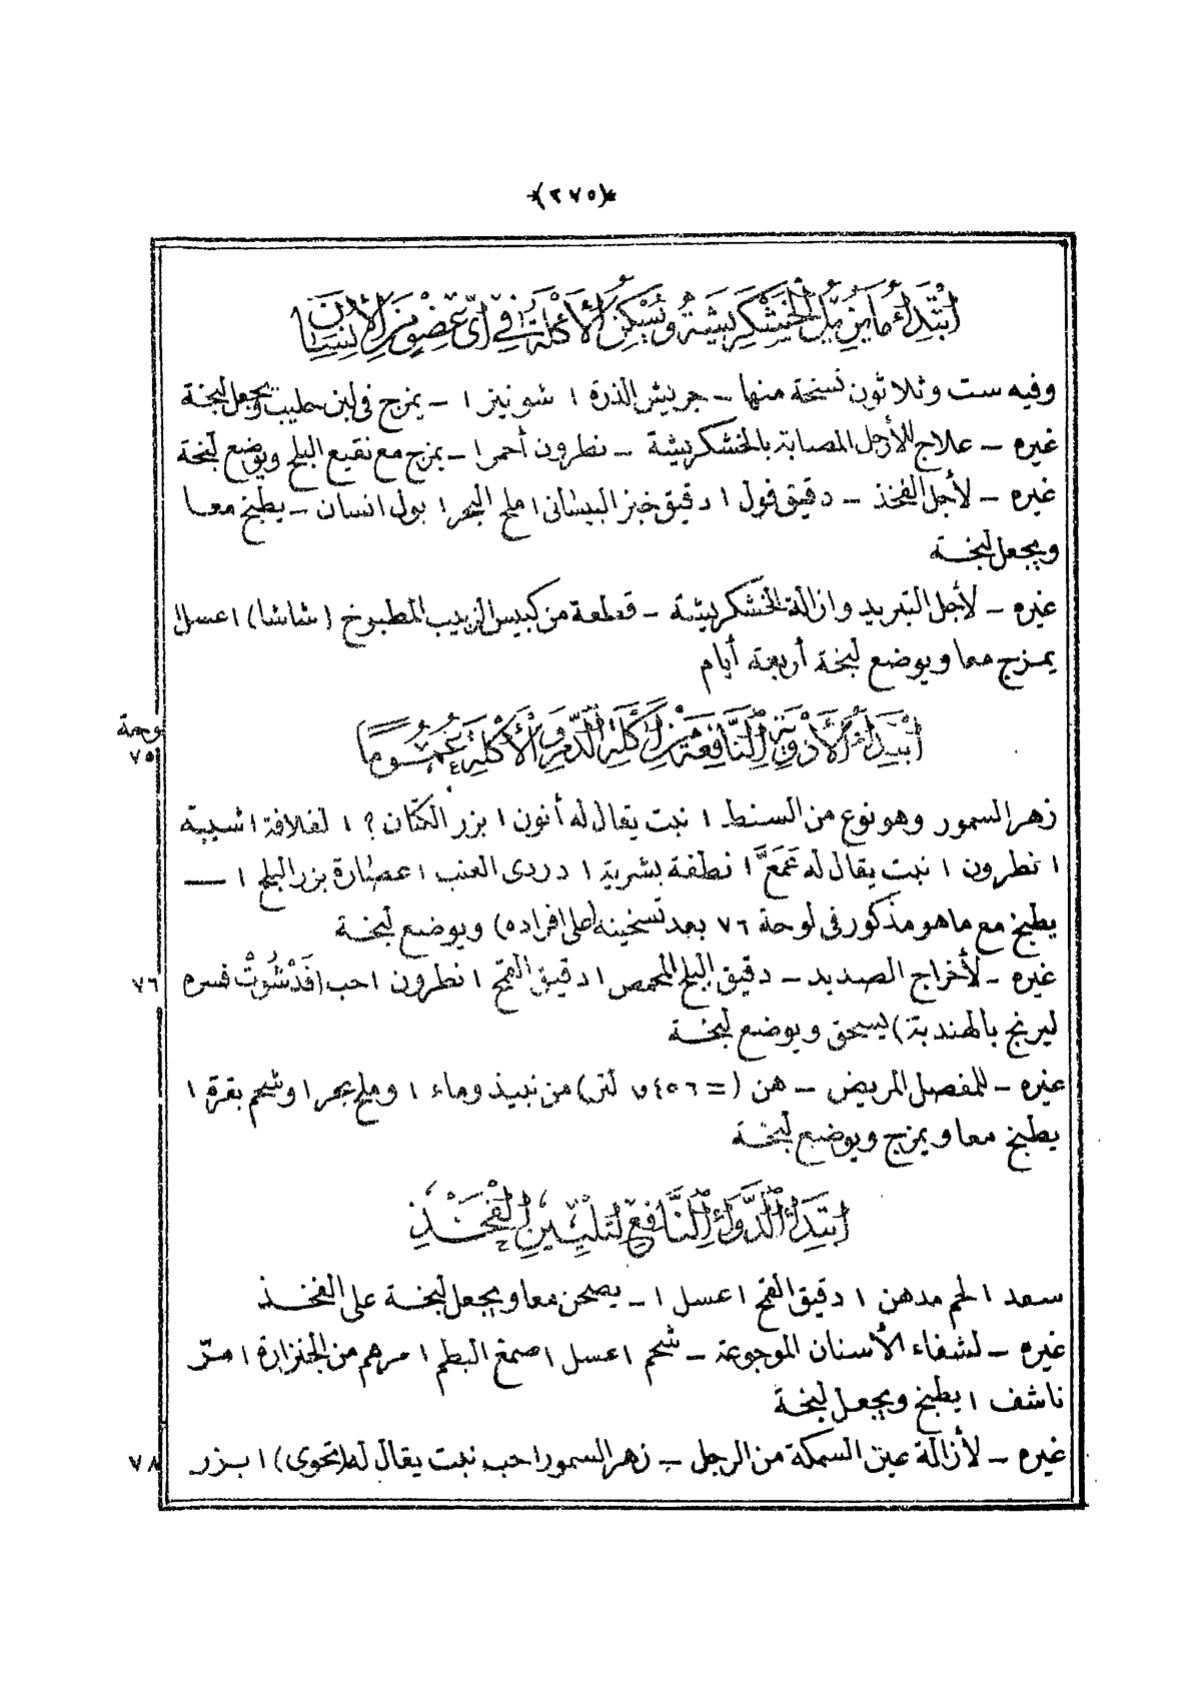 *(٢٧٥)*
ابْتِدَاءُ مَا يُزِيلُ الْخُشْكَرِيشَةَ وَيُسَكِّنُ الأَكْلَةَ فِي أَيّ عُضْوٍ مِنَ الإِنْسَانِ
وفيه ست وثلاثون نسخة منها – جريش الذرة ١ شونيز ١ – يمزج فى لبن حليب ويجعل لبخة
غيره – علاج للأرجل المصابة بالخشكريشة – نطرون أحمر ١ – يمزج مع نقيع البلح ويوضع لبخة
غيره – لأجل الفخذ – دقيق فول ١ دقيق خبز البيسانى ١ ملح البحر ١ بول انسان – يطبخ معا
ويجعل لبخة
غيره – لأجل التبريد وازالة الخشكريشة – قطعة من كبيس الزبيب المطبوخ (شاشا) ١ عسل ١
يمزج معا ويوضع لبخة أربعة أيام
ابْتِدَاءُ الأَدْوِيَةِ النَّافِعَةِ مِنْ أَكْلَةِ الدَّمِ وَالأَكْلَةِ عُمُومًا
لوحة
٧٥
زهر السمور وهو نوع من السنط ١ نبت يقال له أنون ١ بزر الكتان ? ١ لفلافة ١ شيبة
١ نطرون ١ نبت يقال له عَمَعَّ ١ نطفة بشرية ١ دردى العنب ١ عصارة بزر البلح ١ —
يطبخ مع ما هو مذكور فى لوحة ٧٦ بعد تسخينه (على افراده) ويوضع لبخة
غيره – لأخراج الصديد – دقيق البلح المحمص ١ دقيق القمح ١ نطرون ١ حب (قَدْشُوتْ فسره
٧٦
ليرنج بالهندبة) يسحق ويوضع لبخة
غيره – للمفصل المريض – هن (= ٠٫٤٥٦ لتر) من نبيذ وماء ١ وملح بحر ١ وشحم بقرة ١
يطبخ معا ويمزج ويوضع لبخة
ابْتِدَاءُ الدَّوَاءِ النَّافِعِ لِتَلْيِينِ الْفَخْذِ
سعد ١ لحم مدهن ١ دقيق القمح ١ عسل ١ – يصحن معا ويجعل لبخة على الفخذ
غيره – لشفاء الأسنان الموجوعة – شحم ١ عسل ١ صمغ البطم ١ مرهم من الجنزارة ١ مرّ
ناشف ١ يطبخ ويجعل لبخة
غيره – لأزالة عين السمكة من الرجل – زهر السمور ١ حب نبت يقال له (تحوى) ١ بزر
٧٨